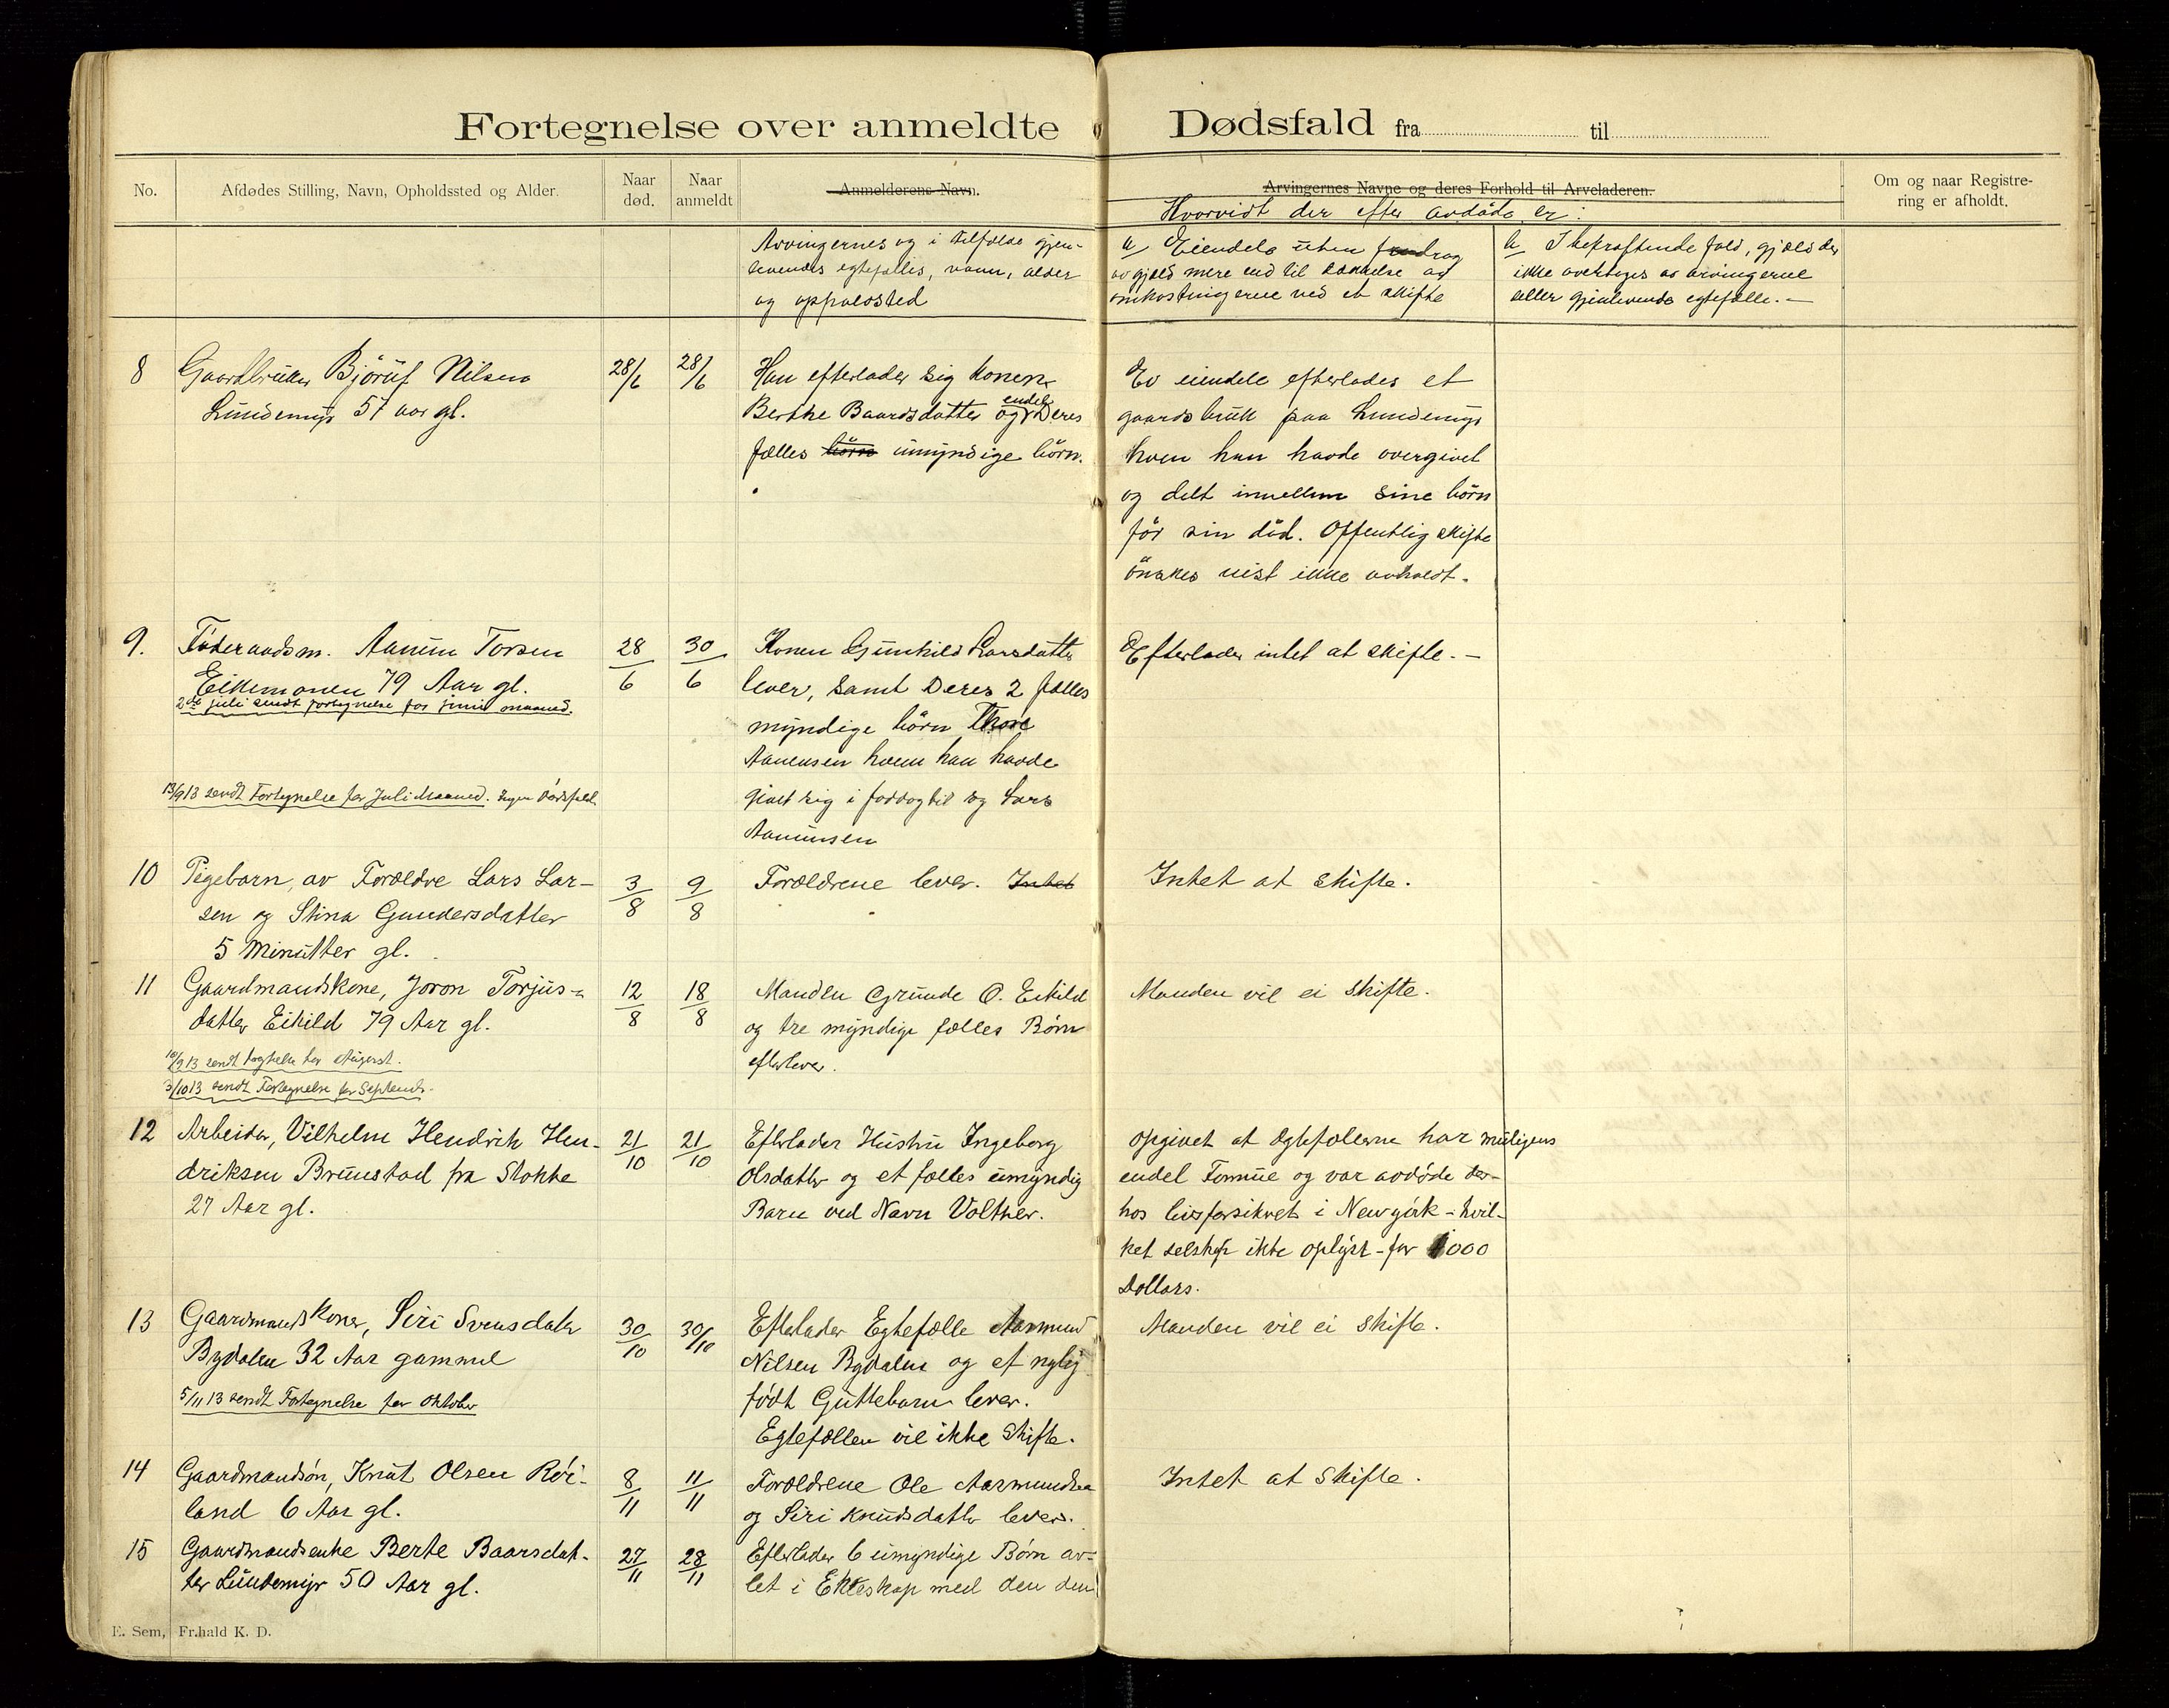 Fortegnelse over anmeldte Dødsfald fra til
No.
Afdødes Stilling, Navn, Opholdssted og Alder.
Naar død.
Naar anmeldt
Anmelderens Navn.
Arvingernes Navne og deres Forhold til Arveladeren.
Om og naar Registre-
ring er afholdt.
Hvorvidt der efter avdøde er:
Arvingernes og i tilfælde gjen-
levendes egtefælles, navn, alder
og opholdsted
a/ Eiendele uten fradrag
av gjæld mere end til dækkelse av
omkostningerne ved et skifte
b/ I bekræftende fald, gjæld der
ikke overtages av arvingerne
eller gjenlevende egtefælle. -
8
Gaardbruker Bjørulf Nilsen
Lundemyr 57 aar gl.
28/6
28/6
Han efterlader sig konen
Berthe Baardsdatter og endel Deres
fælles børn umyndige børn.
Av eiendele efterlades et
gaardsbruk paa Lundemyr
hven han havde overgivet
og delt imellem sine børn
før sin død. Offentlig skifte
ønskes vist ikke avholdt.
9.
Føderaadsm. Aanun Torsen
Eikemonen 79 Aar gl.
2den juli sendt fortegnelse for juni maaned.
28/6
30/6
Konen Gunhild Larsdatter
lever, samt Deres 2 fælles
myndige børn Thore
Aanensen hvem han havde
givet sig i foddog til og Lars
Aanunsen
Efterlader intet at skifte. -
13/9 13 sendt Fortegnelse for Juli Maaned. Ingen Dødsfald.
10
Pigebarn, av Forældre Lars Lar-
sen og Stina Gundersdatter
5 Minutter gl.
3/8
9/8
Forældrene lever. Intet
Intet at skifte.
11
Gaardmandskone, Joron Torjus-
datter Eikild 79 Aar gl.
12/8
18/8
Manden Grunde O. Eikild
og tre myndige fælles Børn
efterlever.
Manden vil ei skifte.
10/9 13 sendt for August.
3/10 13 sendt Fortegnelse for Septembr.
12
Arbeider, Vilhelm Hendrik Hen-
driksen Brunstad fra Stokke
27 Aar gl.
21/10
21/10
Efterlader Hustru Ingeborg
Olsdatter og et fælles umyndig
Barn ved Navn Volther.
Opgivet at Egtefolkene har muligens
endel Formue og var avdøde der-
hos livsforsikret i Newyork - hvil-
ket selskap ikke oplyst - for 1000
Dollars.
13
Gaardmandskone, Siri Svensdatr
Bydalen 32 Aar gammel
5/11 13 sendt Fortegnelse for Oktober
30/10
30/10
Efterlader Egtefælle Aasmund
Nilsen Bydalen og et nylig
født Guttebarn lever.
Egtefællen vil ikke skifte.
Manden vil ei skifte.
14
Gaardmandsøn, Knut Olsen Røi-
land 6 Aar gl.
8/11
11/11
Forældrene Ole Aasmundsen
og Siri Knudsdatter lever.
Intet at skifte.
15
Gaardmandsenke Berte Baarsdat-
ter Lundemyr 50 Aar gl.
27/11
28/11
Efterlader 6 umyndige Børn av-
let i Ekteskap med den den
E. Sem, Fr.hald K. D.